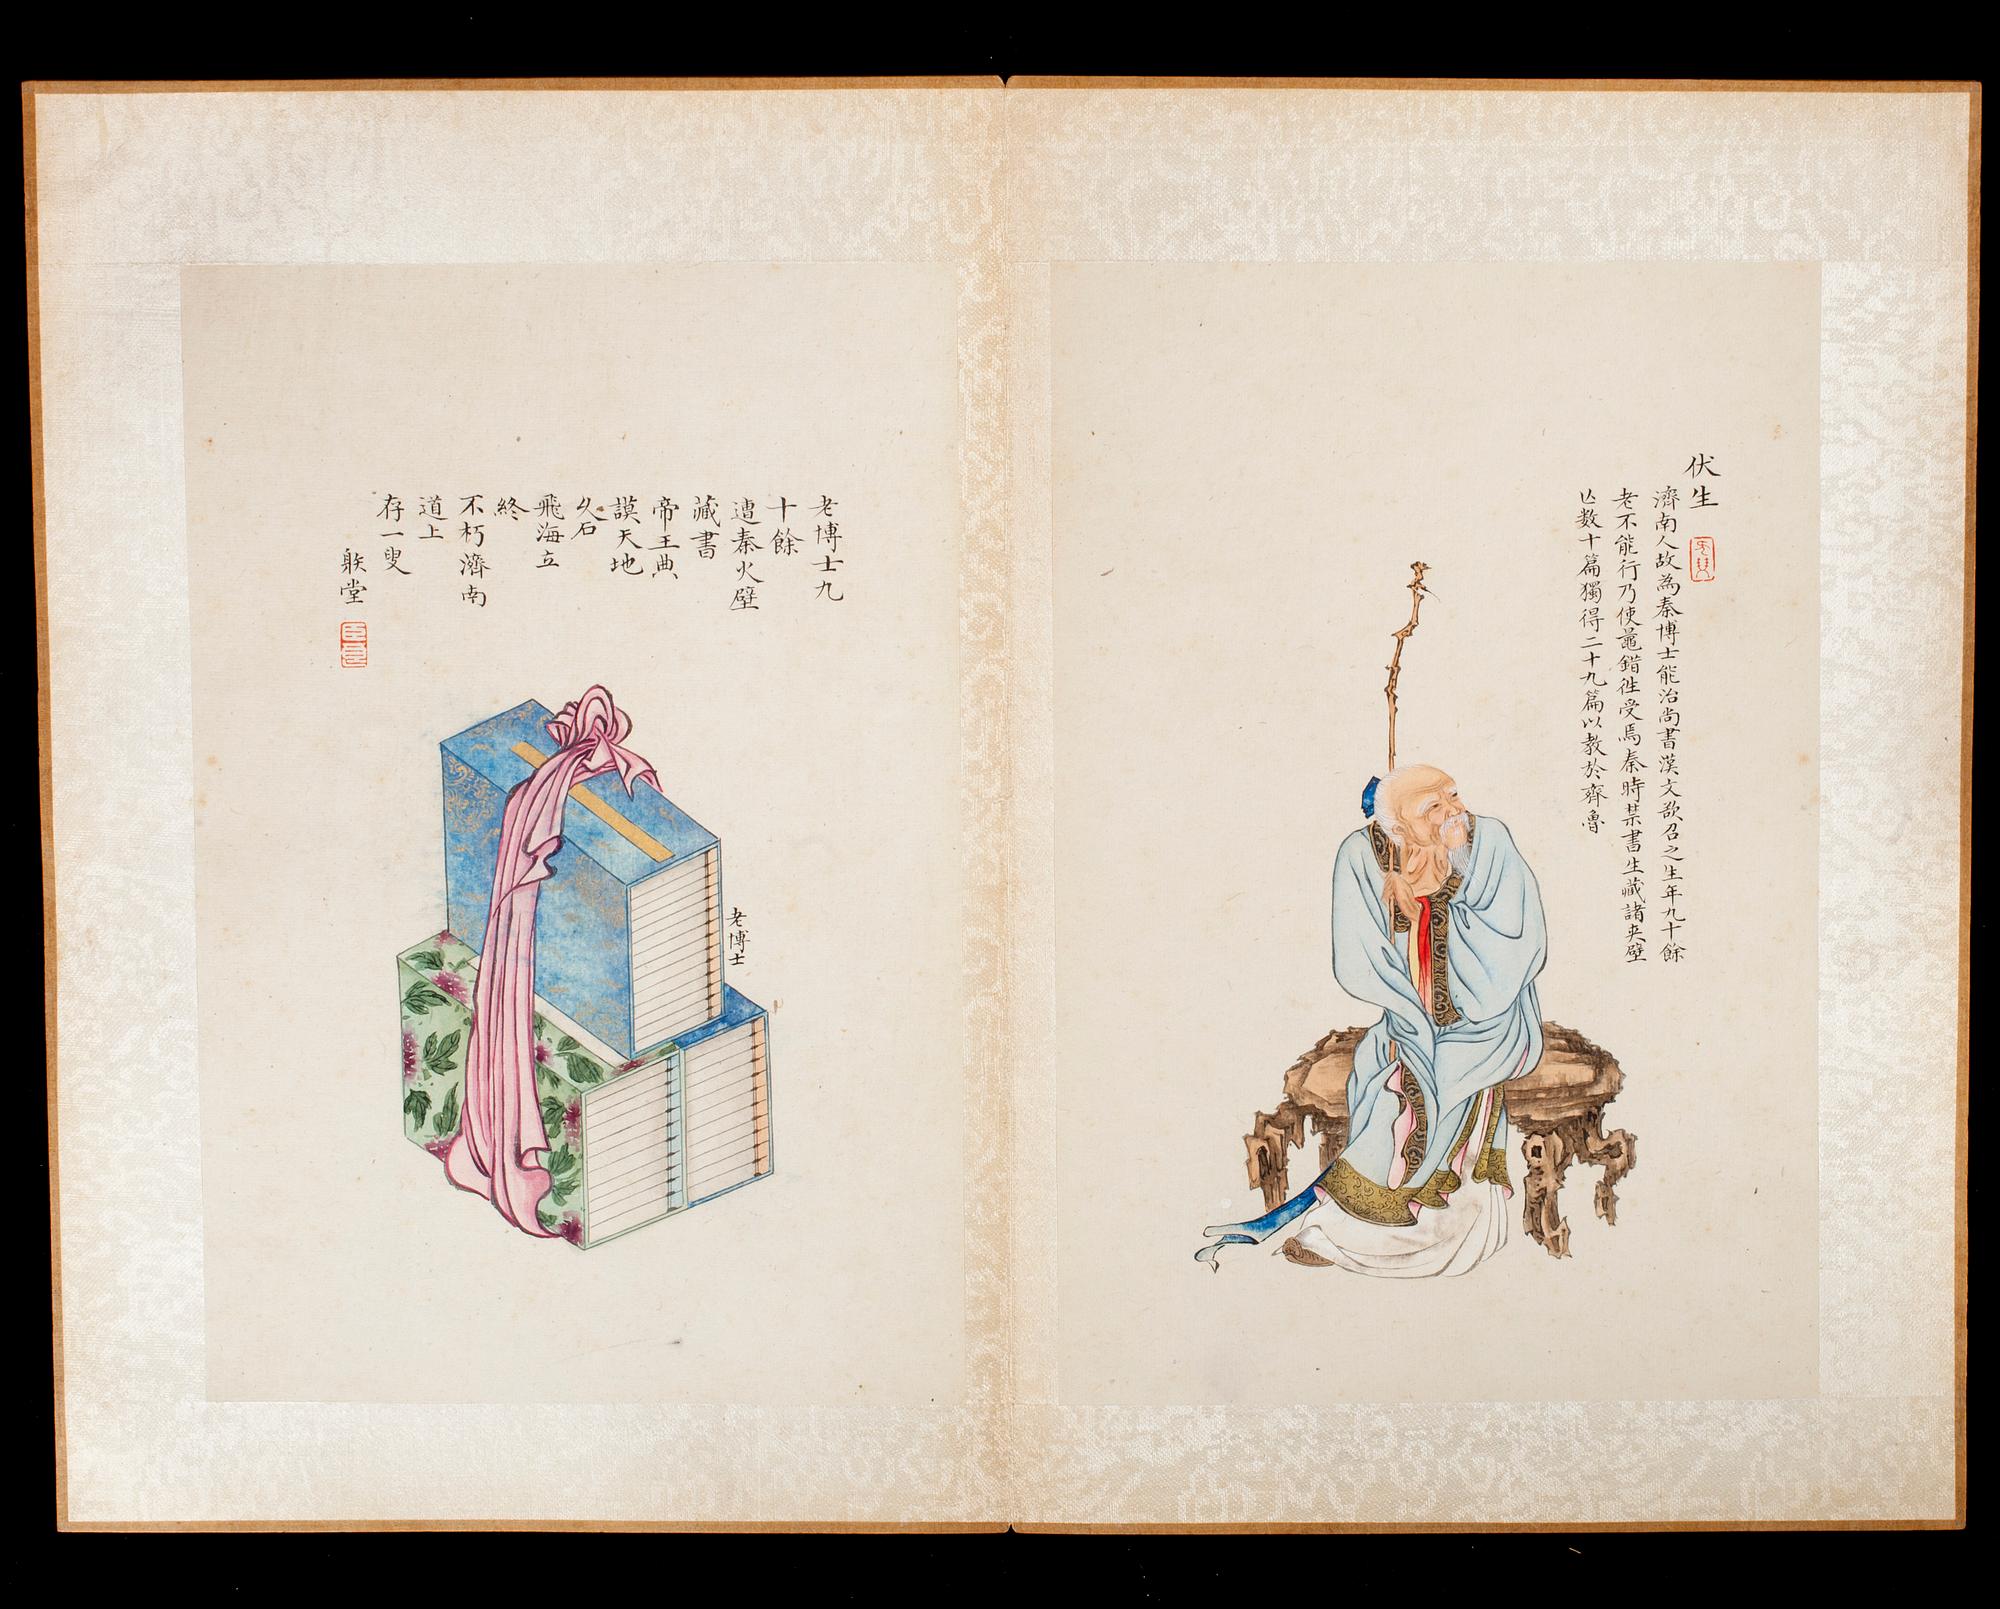 伏生
濟南人故為秦博士能治尚書漢文欲召之生年九十餘
老不能行乃使鼂錯徃受焉秦時禁書生藏諸夾壁
亾数十篇獨得二十九篇以教於齊魯
老博士九
十餘
遭秦火壁
藏書
帝王典
謨天地
久石
飛海立
終
不朽濟南
道上
存一叟
堂
老博士